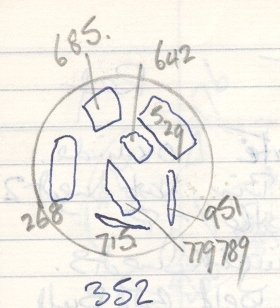 685.
642
529
268
951
715
779789
352